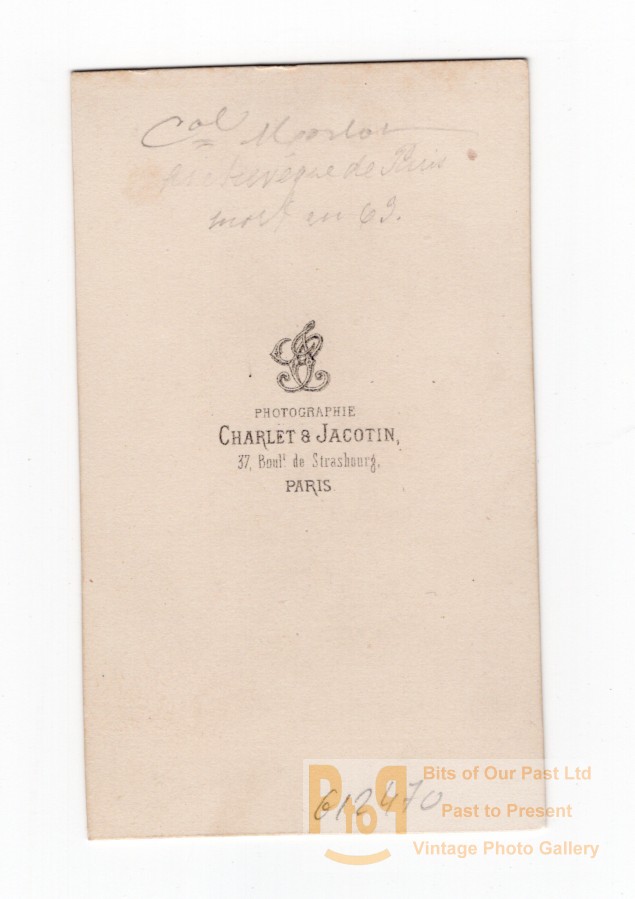 Cal Morlot
archevêque de Paris
mort en 62.
PHOTOGRAPHIE
CHARLET & JACOTIN,
37, Boulᵗ de Strasbourg,
PARIS
612470
PtoP
Bits of Our Past Ltd
Past to Present
Vintage Photo Gallery